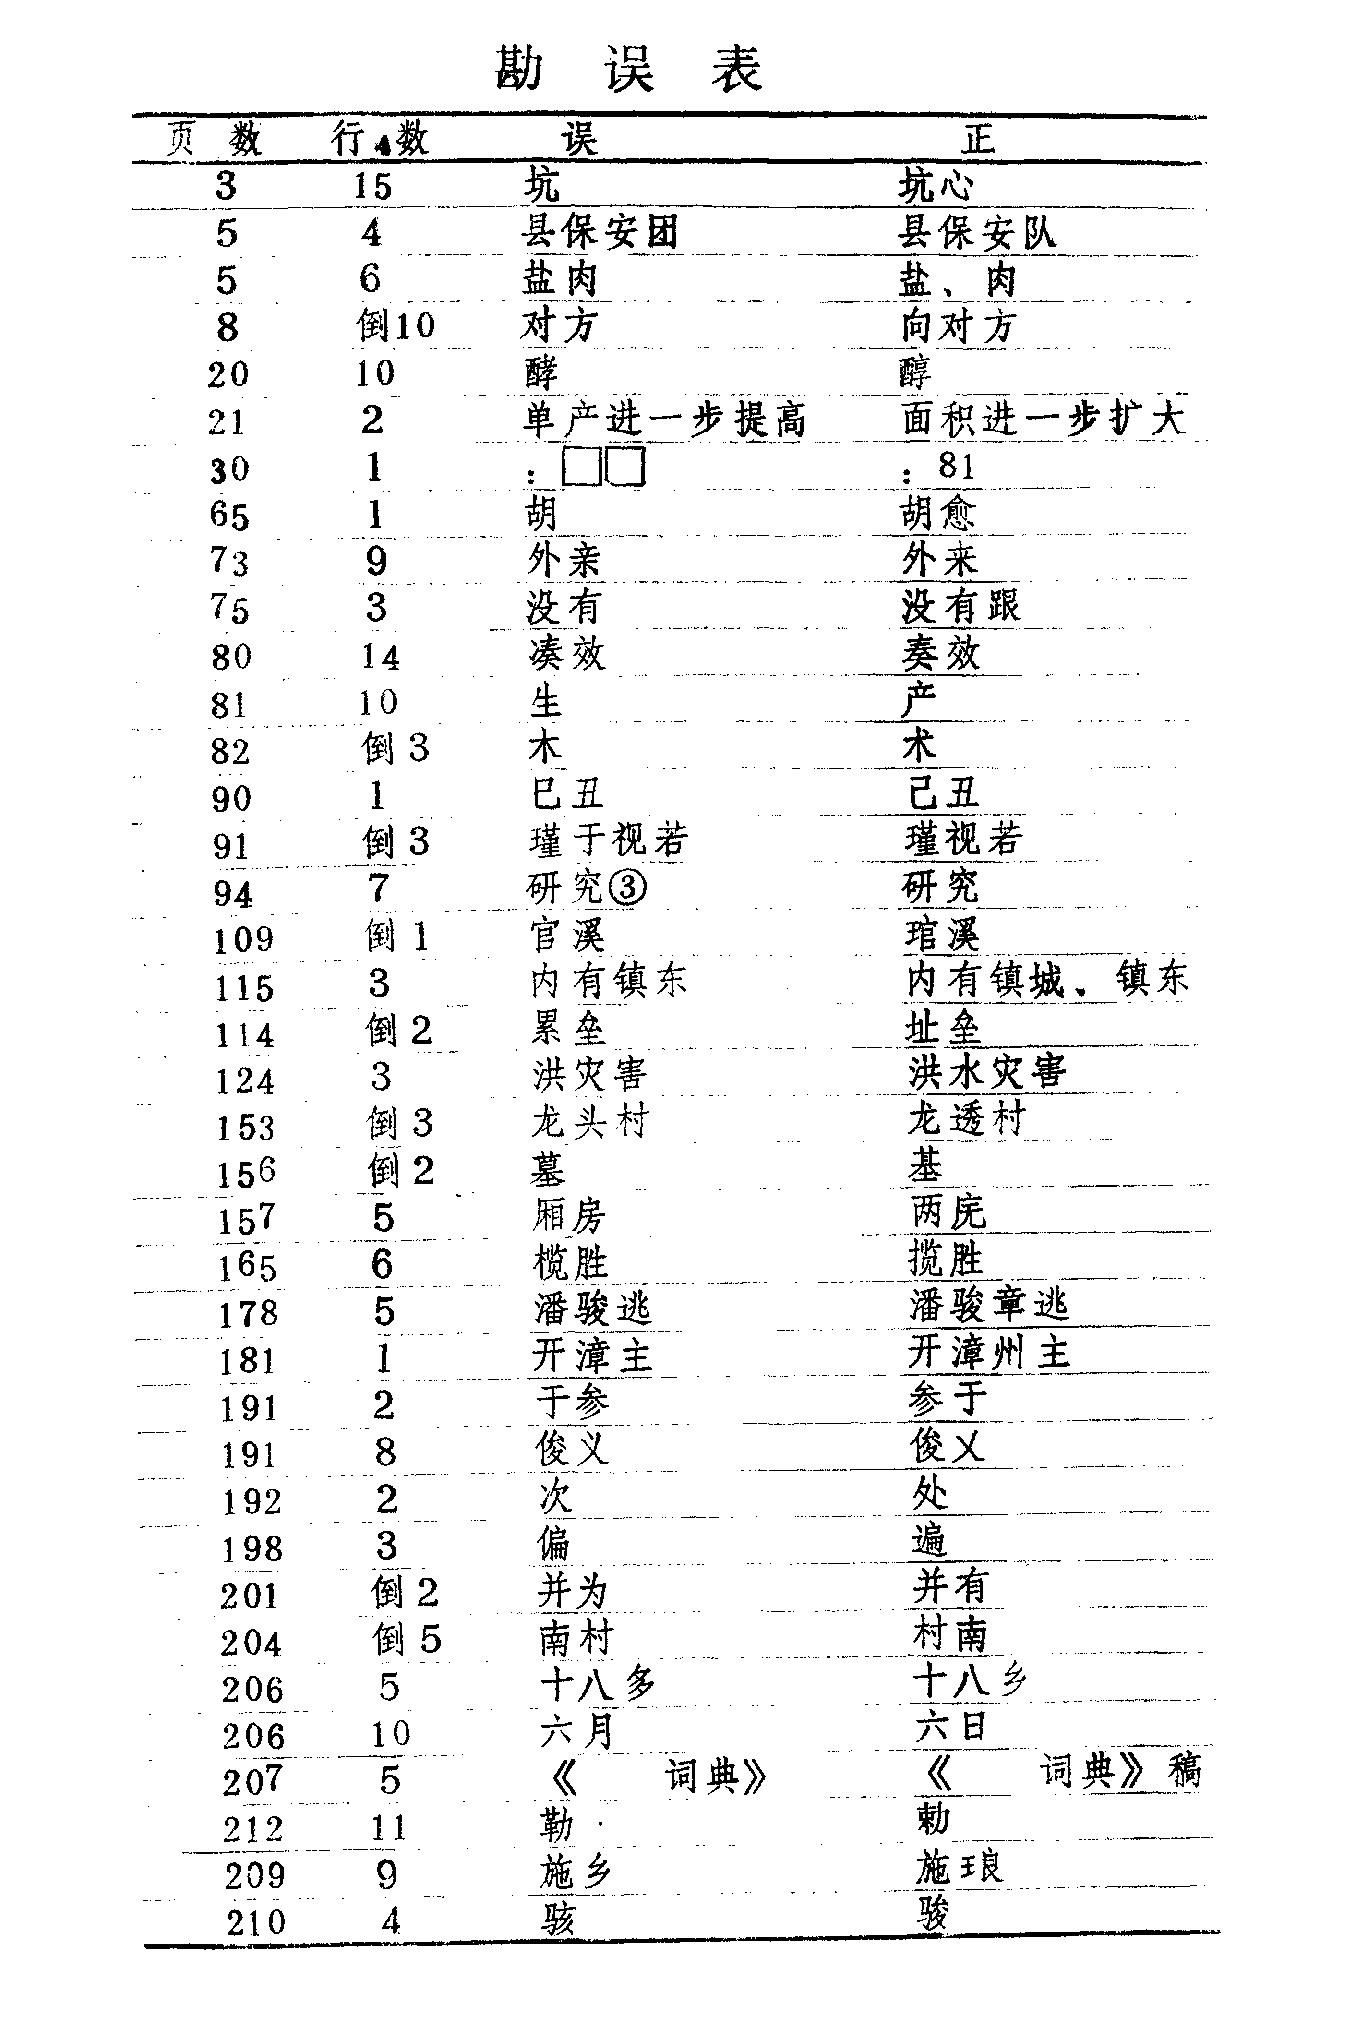 勘误表
页数 行数 误 正
3 15 坑 坑心
5 4 县保安团 县保安队
5 6 盐肉 盐、肉
8 倒10 对方 向对方
20 10 酵 醇
21 2 单产进一步提高 面积进一步扩大
30 1 :□□ :81
65 1 胡 胡愈
73 9 外亲 外来
75 3 没有 没有跟
80 14 凑效 奏效
81 10 生 产
82 倒3 木 术
90 1 巳丑 己丑
91 倒3 瑾于视若 瑾视若
94 7 研究③ 研究
109 倒1 官溪 琯溪
115 3 内有镇东 内有镇城、镇东
114 倒2 累垒 址垒
124 3 洪灾害 洪水灾害
153 倒3 龙头村 龙透村
156 倒2 墓 基
157 5 厢房 两庑
165 6 榄胜 揽胜
178 5 潘骏逃 潘骏章逃
181 1 开漳主 开漳州主
191 2 于参 参于
191 8 俊义 俊乂
192 2 次 处
198 3 偏 遍
201 倒2 并为 并有
204 倒5 南村 村南
206 5 十八多 十八乡
206 10 六月 六日
207 5 《 词典》 《 词典》稿
212 11 勒 勅
209 9 施乡 施琅
210 4 骇 骏